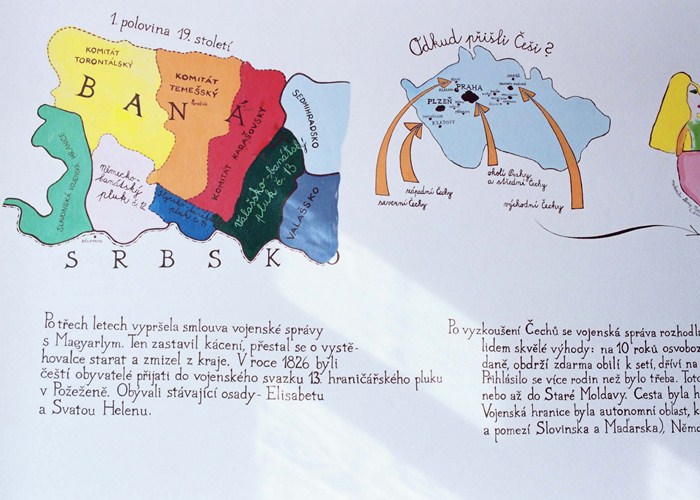 1. polovina 19. století
KOMITÁT
TORONTÁLSKÝ
KOMITÁT
TEMEŠSKÝ
BANÁ
KOMITÁT KARAŠOVSKÝ
SEDMIHRADSKO
SLAVONSKÁ VOJENSKÁ HRANICE
německo-
banátský
pluk č. 12
valašsko-banátský
pluk č. 13
VALAŠSKO
SRBSKO
Odkud přišli Češi?
PRAHA
PLZEŇ
KLATOVY
severní Čechy
západní Čechy
okolí Prahy
a střední Čechy
východní Čechy
Po třech letech vypršela smlouva vojenské správy
s Magyarlym. Ten zastavil kácení, přestal se o vystě-
hovalce starat a zmizel z kraje. V roce 1826 byli
čeští obyvatelé přijati do vojenského svazku 13. hraničářského pluku
v Požeženě. Obývali stávající osady - Elisabetu
a Svatou Helenu.
Po vyzkoušení Čechů se vojenská správa rozhodla
lidem skvělé výhody: na 10 roků osvoboz
daně, obdrží zdarma obilí k setí, dříví na
Přihlásilo se více rodin než bylo třeba. Tot
nebo až do Staré Moldavy. Cesta byla h
Vojenská hranice byla autonomní oblast, k
a pomezí Slovinska a Maďarska), Němc